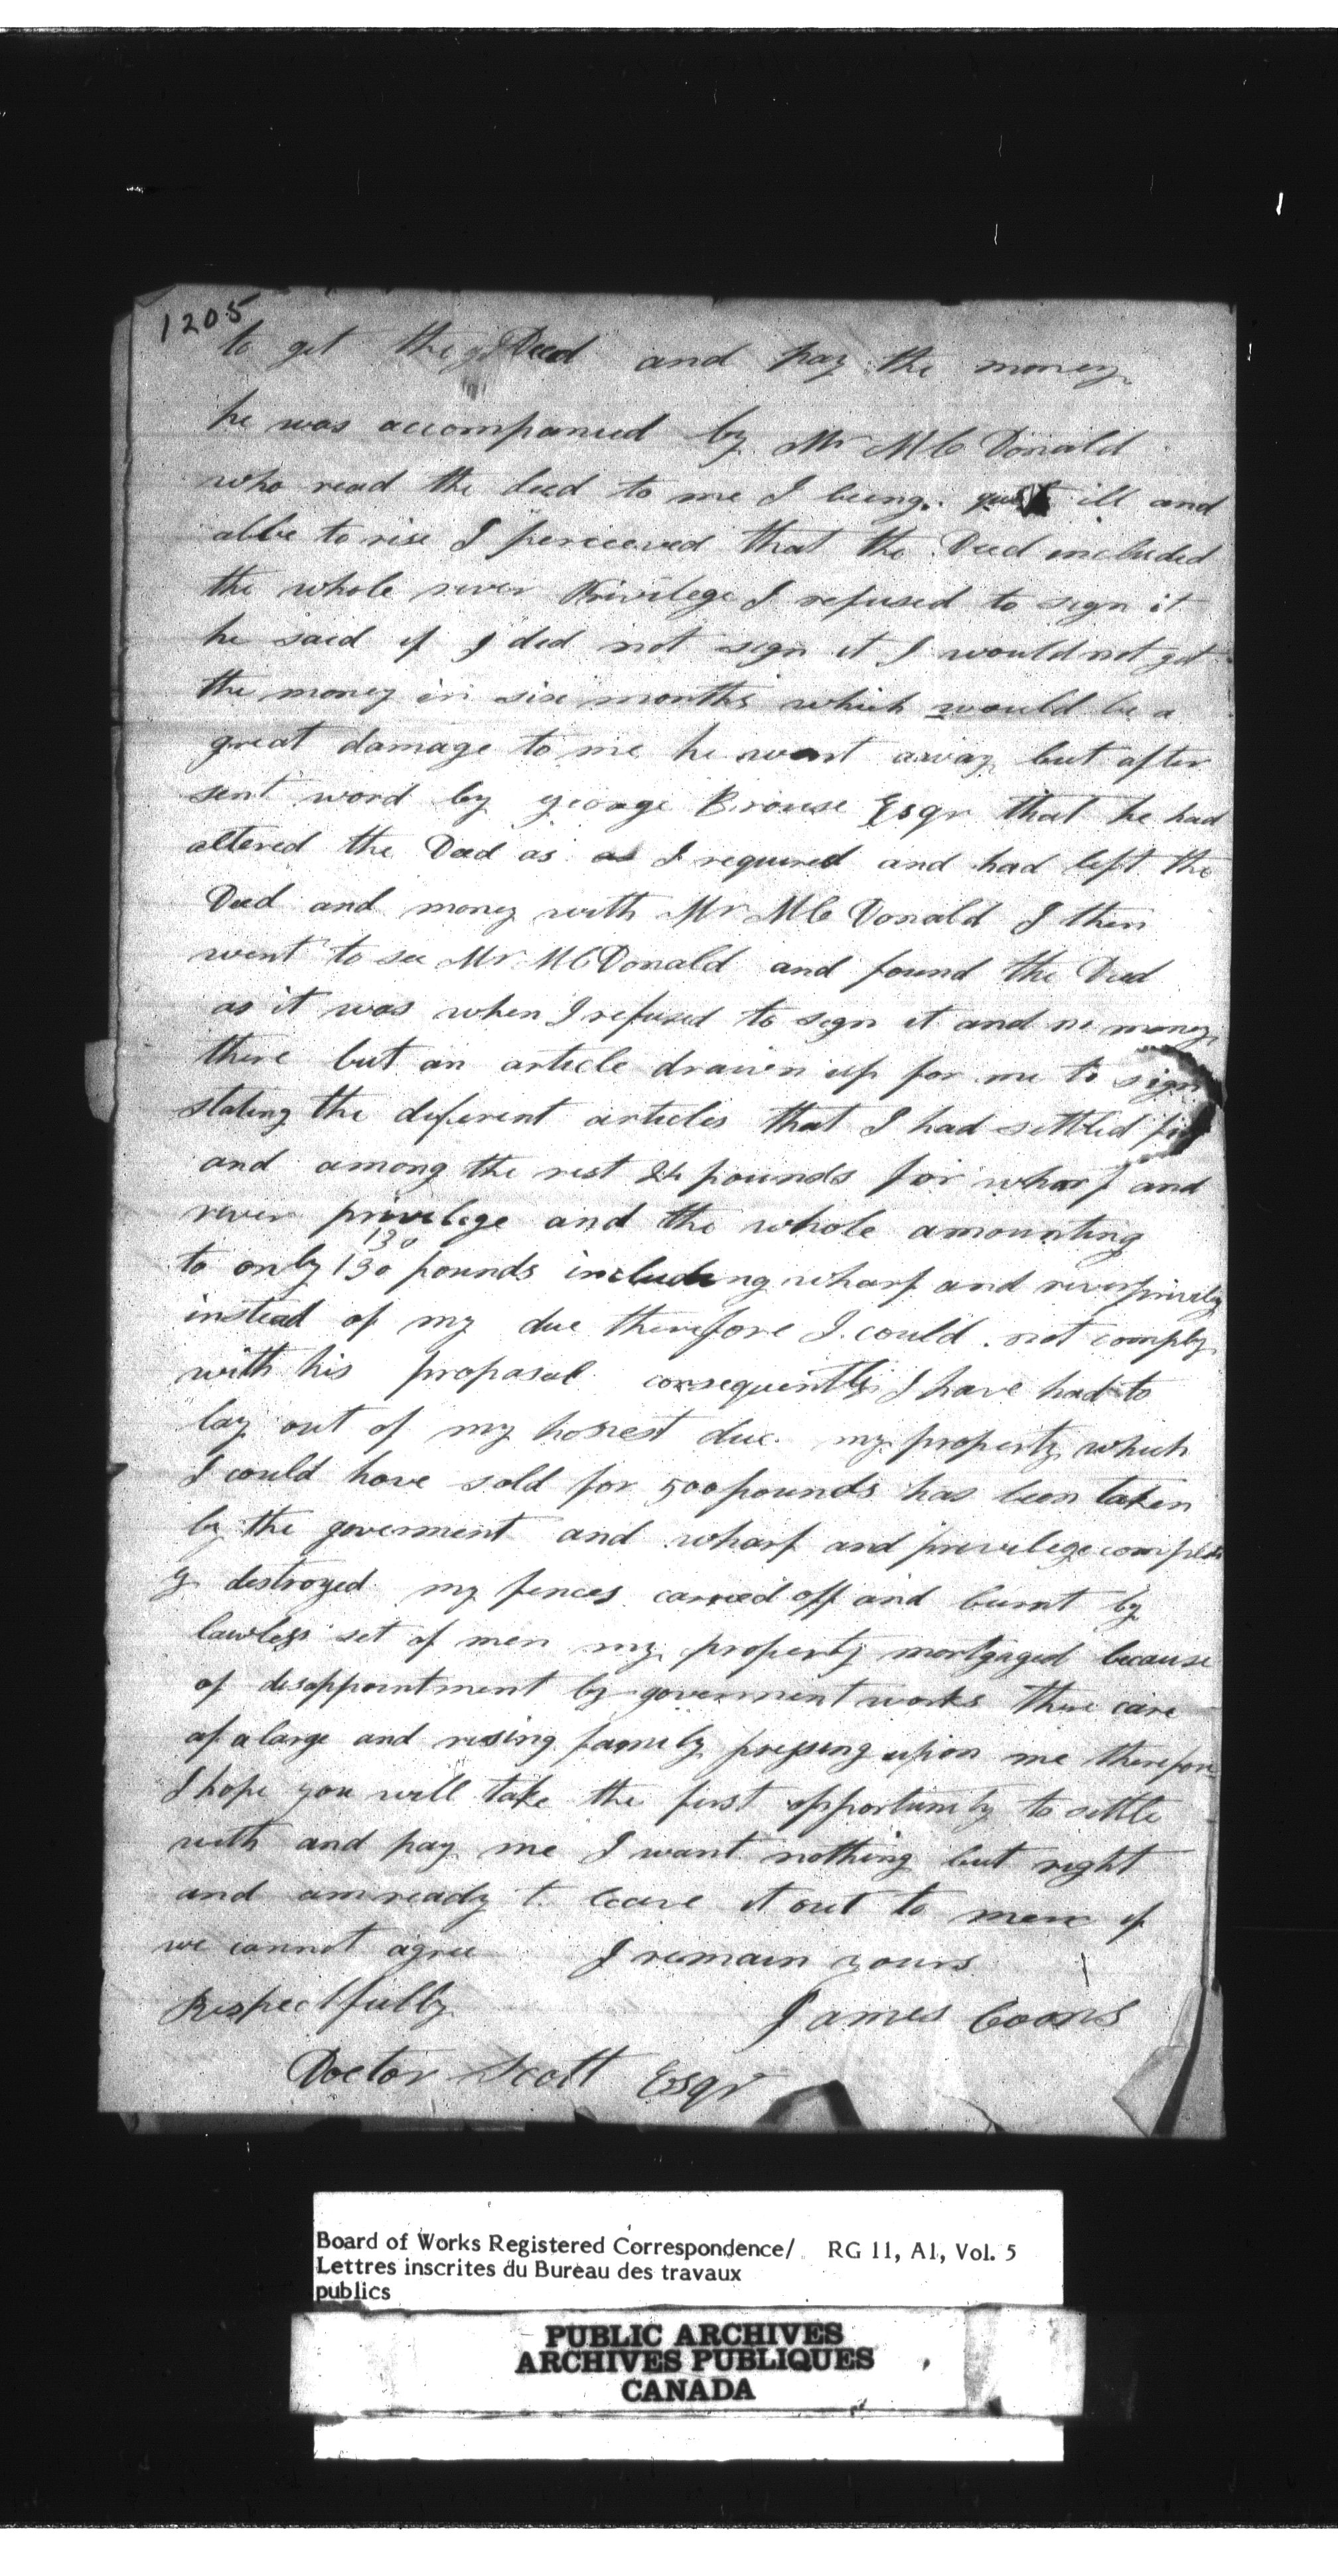 1205
to get the Deed and pay the money
he was accompanied by Mr Mc Donald
who read the deed to me I being ill and
able to rise I perceeved that the Deed included
the whole river Privilege I refused to sign it
he said if I did not sign it I would not get
the money in six months which would be a
great damage to me he went away but after
sent word by george Brouse Esqr that he had
altered the Deed as as I required and had left the
Deed and money with Mr Mc Donald I then
went to see Mr McDonald and found the Deed
as it was when I refused to sign it and no money
there but an article drawen up for me to sign
stating the diferent articles that I had settled for
and among the rest 24 pounds for wharf and
river privilege and the whole amounting
130
to only 130 pounds including wharf and river privileg
instead of my due therefore I could not comply
with his proposal consequently I have had to
lay out of my honest due my property which
I could have sold for 500 pounds has been taken
by the goverment and wharf and privilege complete
y destroyed my fences carried off and burnt by
lawless set of men my property mortgaged because
of disappointment by goverment works there care
of a large and rising family pressing upon me therefore
I hope you will take the first opportunity to settle
with and pay me I want nothing but right
and am ready t leave it out to menc if
we cannot agree I remain yours
Respectfully James Coons
Doctor Scott Esqr
Board of Works Registered Correspondence/ RG 11, A1, Vol. 5
Lettres inscrites du Bureau des travaux
publics
PUBLIC ARCHIVES
ARCHIVES PUBLIQUES
CANADA